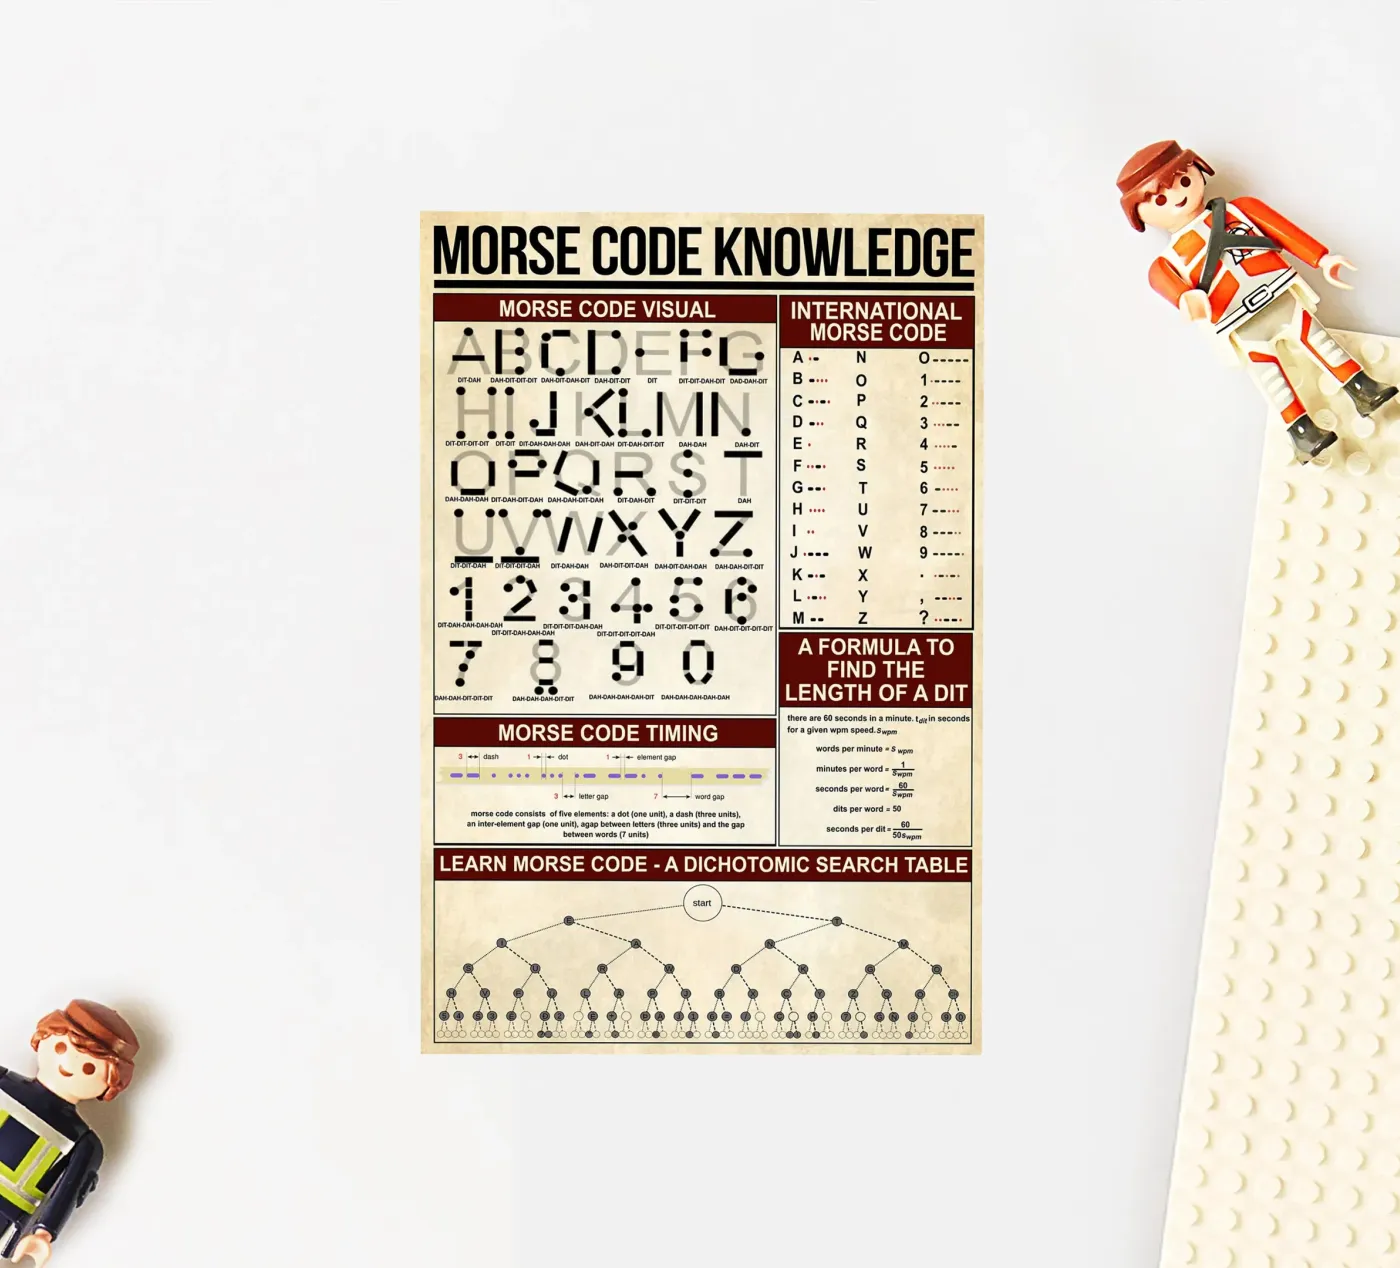 MORSE CODE KNOWLEDGE
MORSE CODE VISUAL
A B C D E F G
DIT-DAH DAH-DIT-DIT-DIT DAH-DIT-DAH-DIT DAH-DIT-DIT DIT DIT-DIT-DAH-DIT DAD-DAH-DIT
H I J K L M N
DIT-DIT-DIT-DIT DIT-DIT DIT-DAH-DAH-DAH DAH-DIT-DAH DIT-DAH-DIT-DIT DAH-DAH DAH-DIT
O P Q R S T
DAH-DAH-DAH DIT-DAH-DAH-DIT DAH-DAH-DIT-DAH DIT-DAH-DIT DIT-DIT-DIT DAH
U V W X Y Z
DIT-DIT-DAH DIT-DIT-DIT-DAH DIT-DAH-DAH DAH-DIT-DIT-DAH DAH-DIT-DAH-DAH DAH-DAH-DIT-DIT
1 2 3 4 5 6
DIT-DAH-DAH-DAH-DAH DIT-DIT-DAH-DAH-DAH DIT-DIT-DIT-DAH-DAH DIT-DIT-DIT-DIT-DAH DIT-DIT-DIT-DIT-DIT DAH-DIT-DIT-DIT-DIT
7 8 9 0
DAH-DAH-DIT-DIT-DIT DAH-DAH-DAH-DIT-DIT DAH-DAH-DAH-DAH-DIT DAH-DAH-DAH-DAH-DAH
INTERNATIONAL
MORSE CODE
A ·- N O -----
B -··· O 1 ·----
C -·-· P 2 ··---
D -·· Q 3 ···--
E · R 4 ····-
F ··-· S 5 ·····
G --· T 6 -····
H ···· U 7 --···
I ·· V 8 ---··
J ·--- W 9 ----·
K -·- X . ·-·-·-
L ·-·· Y , --··--
M -- Z ? ··--··
A FORMULA TO
FIND THE
LENGTH OF A DIT
there are 60 seconds in a minute. t dit in seconds
for a given wpm speed. S wpm
words per minute = S wpm
minutes per word = 1 / S wpm
seconds per word = 60 / S wpm
dits per word = 50
seconds per dit = 60 / 50 S wpm
MORSE CODE TIMING
3 dash 1 dot 1 element gap
3 letter gap 7 word gap
morse code consists of five elements: a dot (one unit), a dash (three units),
an inter-element gap (one unit), agap between letters (three units) and the gap
between words (7 units)
LEARN MORSE CODE - A DICHOTOMIC SEARCH TABLE
start
E T
A N M
S U R W D K G O